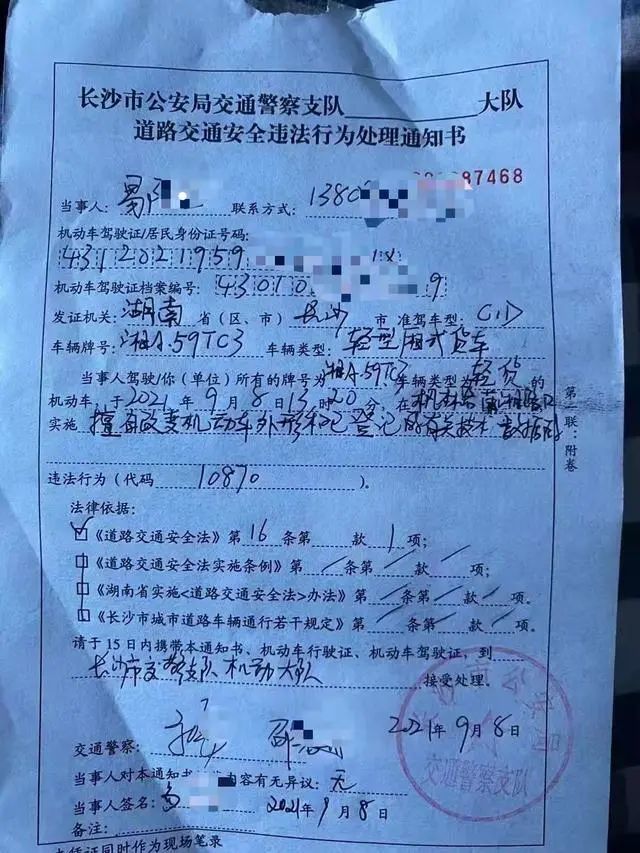 长沙市公安局交通警察支队 大队
道路交通安全违法行为处理通知书
87468
当事人: 联系方式:1380
机动车驾驶证/居民身份证号码:
4312021959
机动车驾驶证档案编号:43010 9
发证机关:湖南省(区、市)长沙市 准驾车型:C1D
车辆牌号:湘A·59TC3 车辆类型:轻型厢式货车
当事人驾驶/你(单位)所有的牌号为湘A·59TC3车辆类型为轻货的
机动车,于2021年9月8日13时20分,在
实施擅自改变机动车外形和已登记的有关技术数据的
违法行为(代码 10870 )。
法律依据:
《道路交通安全法》第16条第 款1项;
《道路交通安全法实施条例》第/条第/款/项;
《湖南省实施<道路交通安全法>办法》第/条第/款/项;
《长沙市城市道路车辆通行若干规定》第/条第/款/项;
请于15日内携带本通知书、机动车行驶证、机动车驾驶证,到
长沙市交警支队机动大队接受处理。
2021年9月8日
交通警察:
交通警察支队
当事人对本通知书 内容有无异议:无
当事人签名: 2021年9月8日
备注:
凭证同时作为现场笔录
第一联:附卷